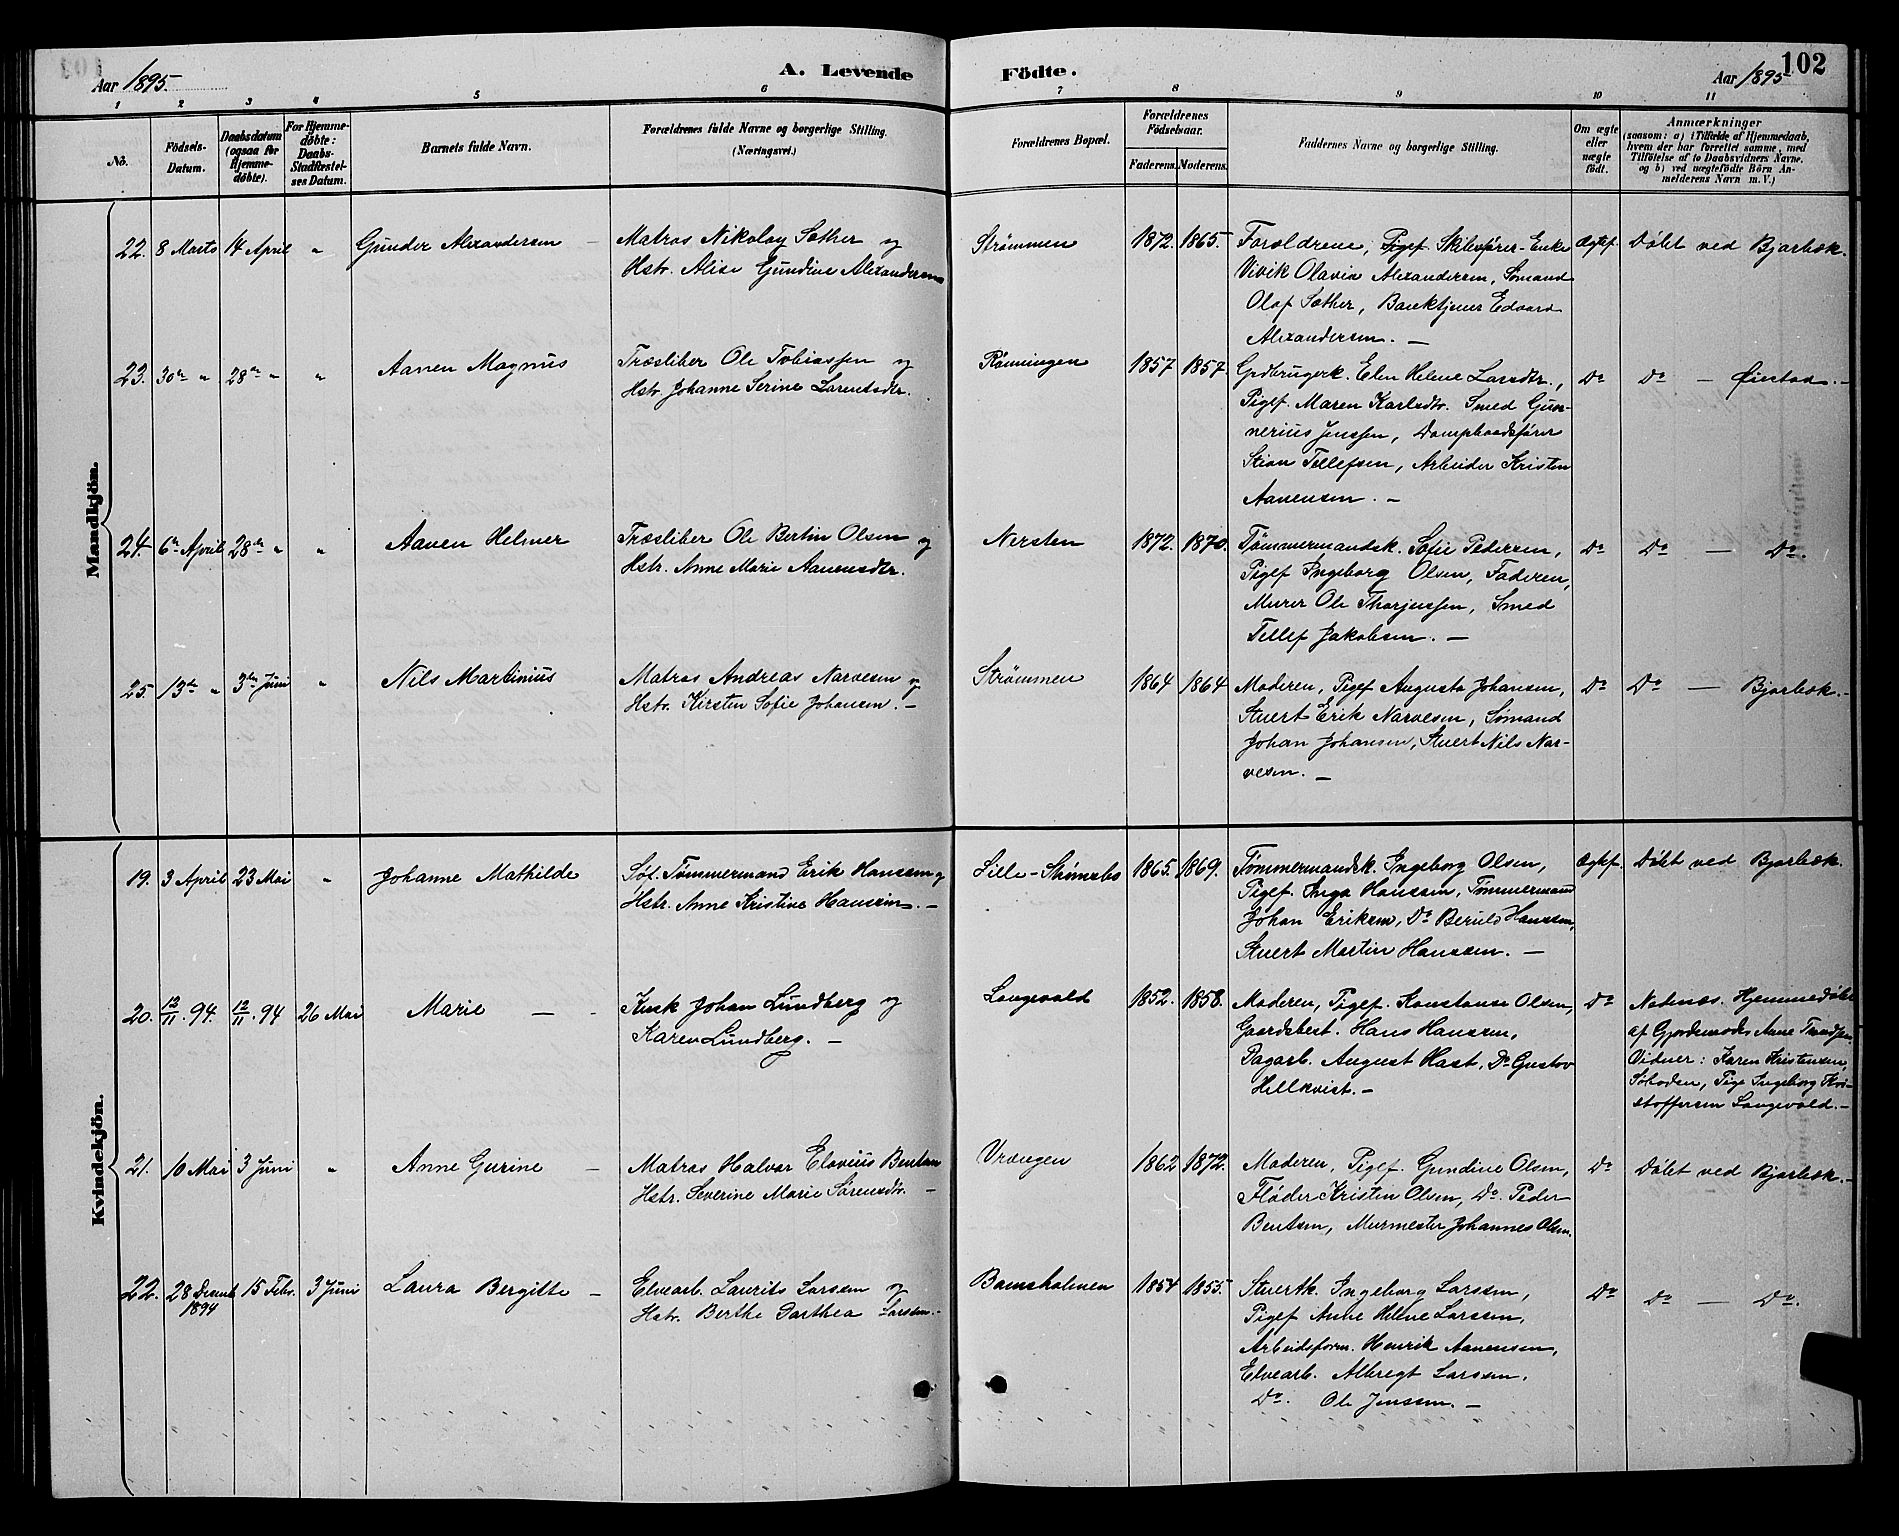 102
Aar 1895.
A. Levende Födte.
Aar 1895
1 2 3 4 5 6 7 8 9 10 11
No.
Födsels-Datum.
Daabsdatum (ogsaa for Hjemme-döbte).
For Hjemme-döbte: Daabs-Stadfæstel-ses Datum.
Barnets fulde Navn.
Forældrenes fulde Navne og borgerlige Stilling.
(Næringsvei.)
Forældrenes Bopæl.
Forældrenes Födselsaar.
Faderens. Moderens.
Faddernes Navne og borgerlige Stilling.
Om ægte eller uægte födt.
Anmærkninger
(saasom: a) i Tilfælde af Hjemmedaab,
hvem der har forrettet samme, med
Tilföielse af to Daabsvidners Navne.
og b) ved uægtefödte Börn An-
melderens Navn m. V.)
Mandkjön.
22. 8 Marts 14 April " Gunder Alexandersen – Matros Nikolay Sæther og
Hstr. Alise Gundine Alexandersen
Strømmen 1872. 1865. Forældrene, Pigef Skibsfører-Enke
Vivik Olavia Alexandersen, Sømand
Olaf Sæther, Banktjener Edvard
Alexandersen. –
Ægtef. Døbt ved Bjorbæk.
23. 30te " 28de " " Aanen Magnus Træsliber Ole Tobiassen og
Hstr. Johanne Serine Larentsdtr.
Rønningen 1857 1857. Grdbrugerk. Elen Helene Larsdtr.,
Pigef. Maren Karlsdtr. Smed Gun-
nerius Jenssen, Dampbaadsfører
Stian Tellefsen, Arbeider Kristen
Aanensen. –
Do Do – Øiestad. –
24. 6te April 28de " " Aanen Helmer Træsliber Ole Bertin Olsen og
Hstr. Anne Marie Aanensdtr.
Nersten 1872. 1870. Tømmermandsk. Sofie Pedersen,
Pigef Ingeborg Olsen, Faderen,
Murer Ole Thorjussen, Smed
Tellef Jakobsen. –
Do Do – Do.
25. 13de " 3die Juni " Nils Martinius Matros Andreas Narvesen og
Hstr. Kirsten Sofie Johansen. –
Strømmen 1864 1864 Moderen, Pigef Augusta Johansen,
Stuert Erik Narvesen, Sømand
Johan Johansen, Stuert Nils Nar-
vesen. –
Do Do – Bjorbæk. –
Kvindekjön.
19. 3 April 23 Mai " Johanne Mathilde Søt. Tømmermand Erik Hanssen og
Hstr. Anne Kristine Hanssen. –
Lille- 1865. 1869. Tømmermandsk. Ingeborg Olsen,
Pigef. Inga Hanssen, Tømmermand
Johan Eriksen, Do Hanssen,
Stuert Martin Hanssen. –
Ægtef. Døbt ved Bjorbæk.
20. 12/11. 94. 12/11. 94 26 Mai Marie – – Kusk Johan Lundberg og
Karen Lundberg. –
Langevold 1852. 1858. Moderen, Pigef. Konstanse Olsen,
Gaardsbest. Hans Hanssen,
Dagarb. August Hast, Do Gustav
Hellkvist. –
Do Natnæs. Hjemmedøbt
af Gjordemoder Anne
Vidner: Karen Kristensen,
Søboden, Pige Ingeborg Kri-
stoffersen Langevold. –
21. 10 Mai 3 Juni " Anne Gurine – Matros Halvor Elovius Bentsen
Hstr. Severine Marie Sørensdtr. –
Vrengen 1862 1872. Moderen, Pigef. Gundine Olsen,
Fløder Kristen Olsen, Do. Peder
Bentsen, Murmester Johannes Olsen.
Do Døbt ved Bjorbæk. –
22. 28 Decemb 1894 15 Febr. 3 Juni Laura Bergitte – Elvearb. Laurits Larssen og
Hstr. Berthe Darthea Larssen. –
Bomsholmen 1854 1855. Stuertk. Ingeborg Larssen,
Pigef Anne Helene Larssen,
Arbeidsform. Henrik Aanensen,
Elvearb. Albregt Larssen,
Do. Ole Jenssen. –
Do Do – Do.